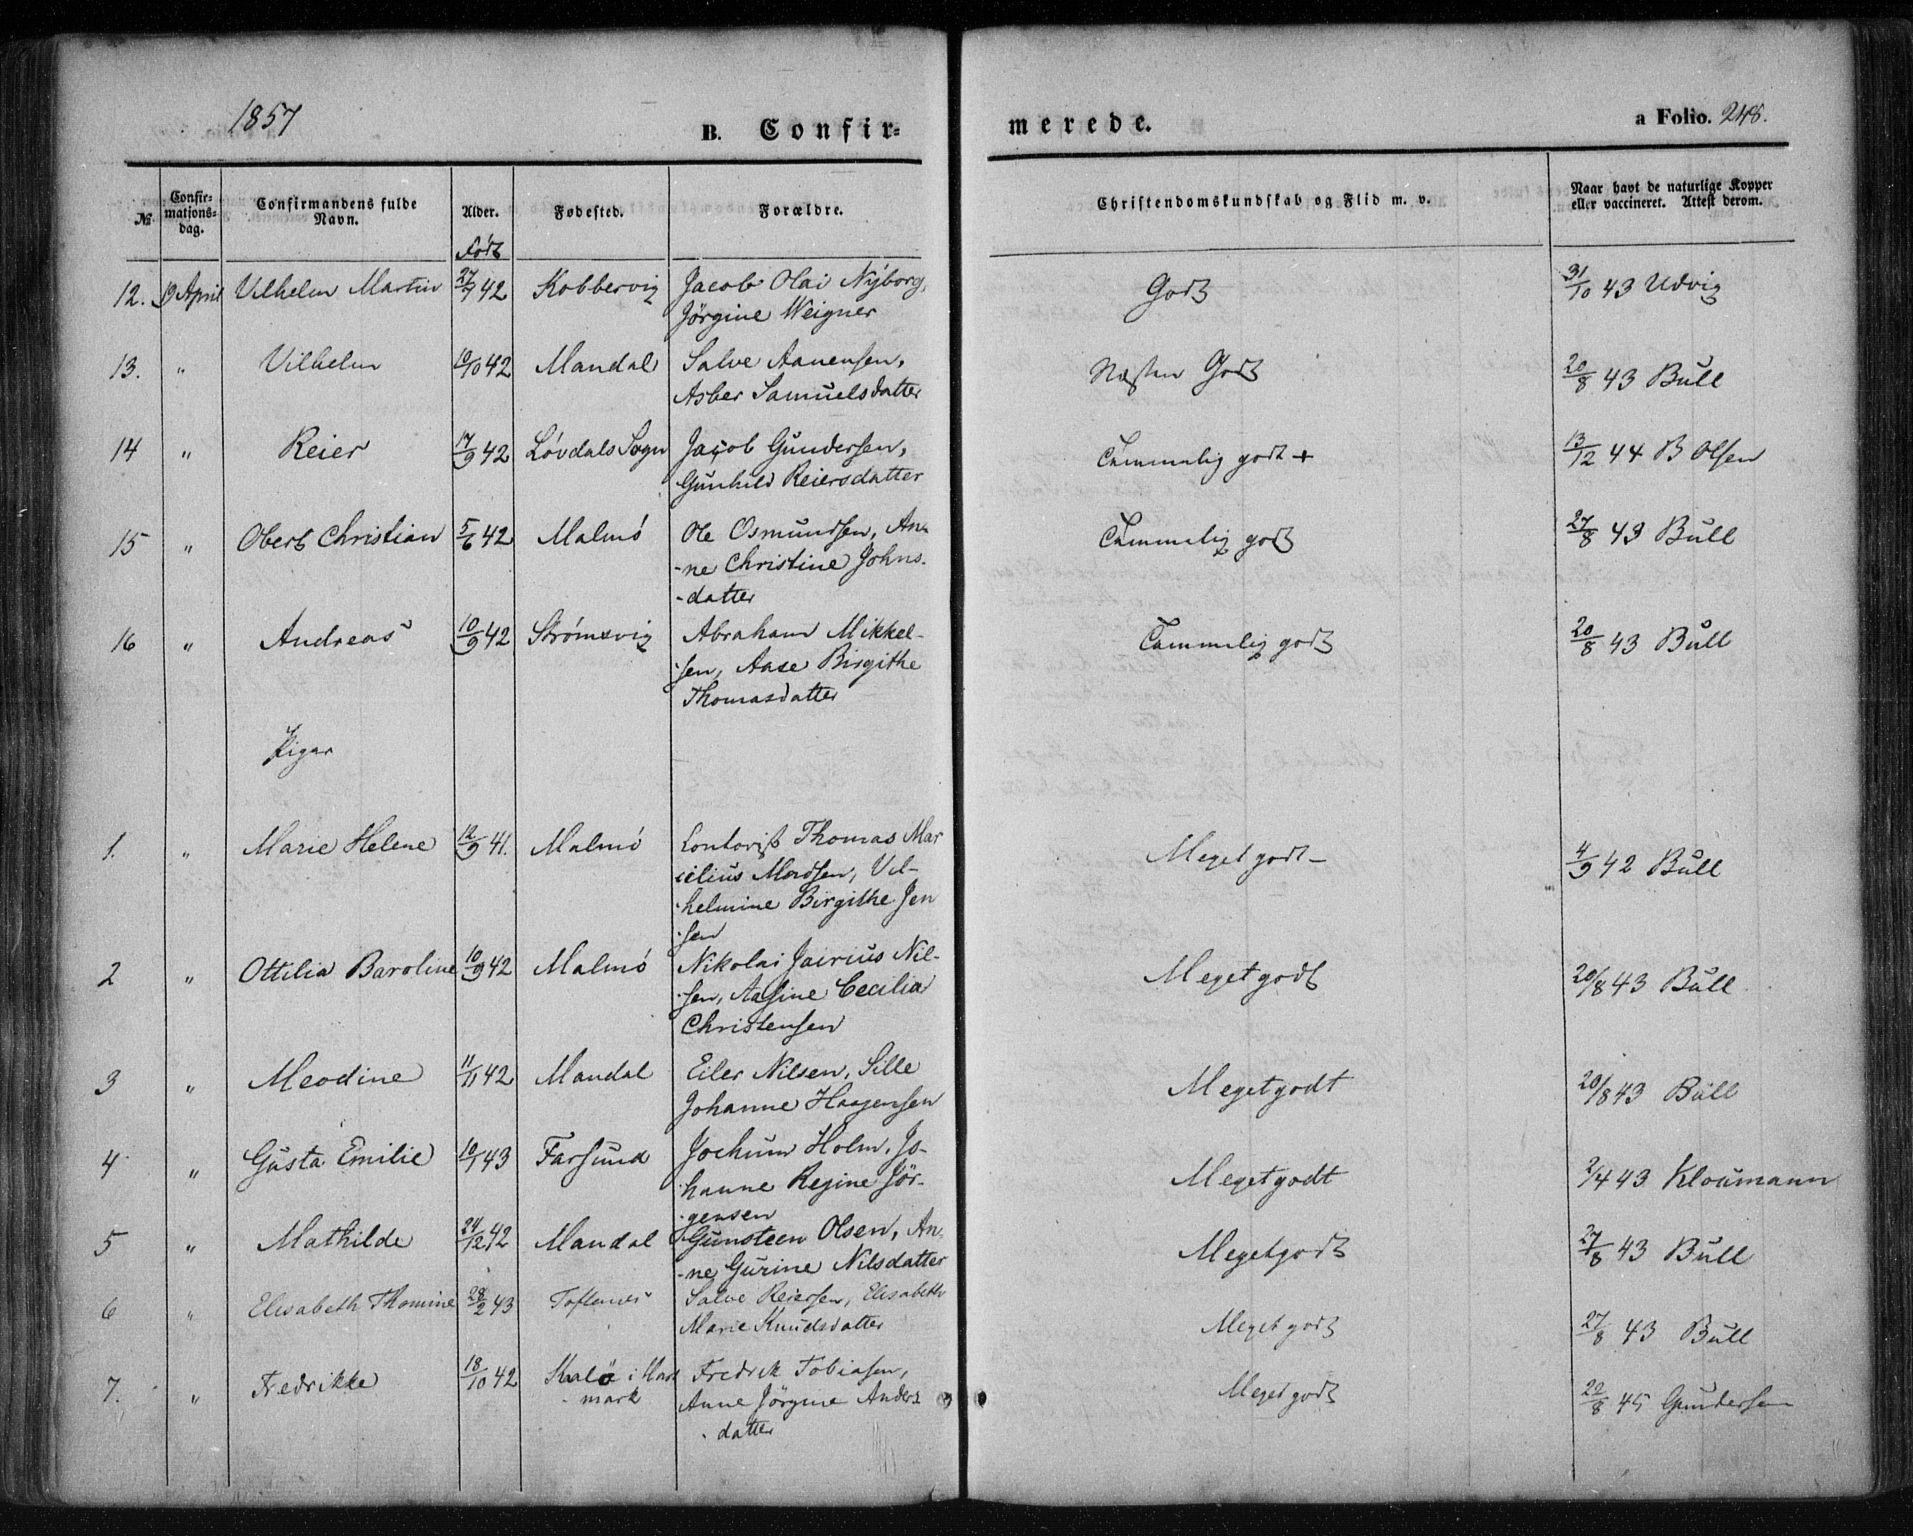 1857
B. Confir-
merede.
a Folio. 248.
№
Confir-
mations-
dag.
Confirmandens fulde
Navn.
Alder.
Født
Fødested.
Forældre.
Christendomskundskab og Flid m. v.
Naar havt de naturlige Kopper
eller vaccineret. Attest derom.
12. 19 April Vilhelm Martin 27/7 42 Kobbervig Jacob Olai Nyborg, Godt 31/10 43 Udvig
Jörgine Weigner
13. " Vilhelm 10/10 42 Mandal Salve Aanensen, Næsten Godt 20/8 43 Bull
Asber Samuelsdatter
14 " Reier 17/9 42 Løvdals Sogn Jacob Gundersen, Temmelig godt + 13/12 44 B Olsen
Gunhild Reiersdatter
15 " Obert Christian 5/6 42 Malmø Ole Osmundsen, An- Temmelig godt 27/8 43 Bull
-ne Christine Johns-
-datter
16 " Andreas 10/9 42 Strømsvig Abraham Mikkel- Temmelig godt 20/8 43 Bull
-sen, Aase Birgithe
Thomasdatter
Piger
1. " Marie Helene 12/9 41. Malmø Contorist Thomas Mar Meget godt - 4/9 42 Bull
cilius Madsen, Vil-
-helmine Birgithe Jen
-sen
2 " Ottilia Baroline 10/9 42 Malmø Nikolai Jairius Nil- Meget godt 20/8 43 Bull
-sen, Aasine Cecilia
Christensen
3 " Meodine 11/11 42 Mandal Eiler Nilsen, Sille Meget godt 20/8 43 Bull
Johanne Haagensen
4 " Gusta Emilie 10/1 43 Farsund Jochum Holm, Jo- Meget godt 2/4 43 Kloumann
-hanne Regine Jör-
-gensen
5 " Mathilde 24/12 42 Mandal Gunsteen Olsen, An- Meget godt 27/8 43 Bull
-ne Gurine Nilsdatter
6 " Elisabeth Thomine 28/2 43 Toftenes Salve Reiersen, Elisabeth Meget godt 27/8 43 Bull
Marie Knudsdatter
7. " Fredrikke 18/10 42 Skalø i Har Fredrik Tobiasen, Meget godt 22/8 45 Gundersen
-mark Anne Jörgine Anders
-datter